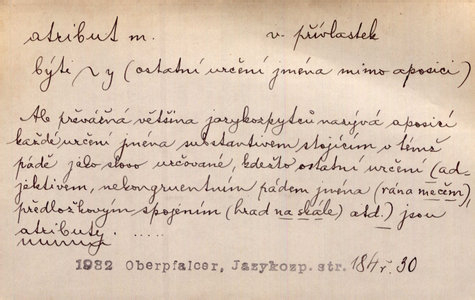 atribut m. v. přívlastek
býti ~ y (ostatní určení jména mimo aposici)
Ale převážná většina jazykozpytců nazývá aposicí
každé určení jména substantivem stojícím v témž
pádě jako slovo určované, kdežto ostatní určení (ad-
jektivem, nekongruentním pádem jména (rána mečem),
předložkovým spojením (hrad na skále) atd.) jsou
atributy. .....
1932 Oberpfalcer, Jazykozp. str. 184 ř. 30